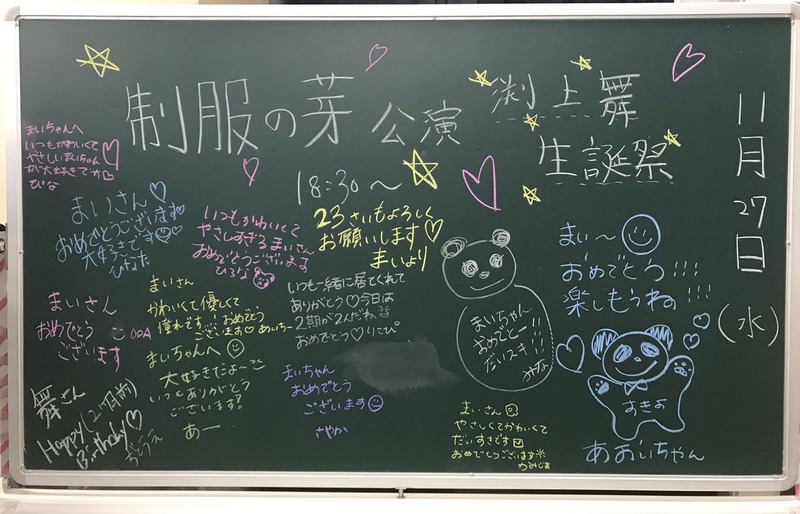 制服の芽 公演
18:30〜
渕上舞
生誕祭
11月27日(水)
まいちゃんへ
いつもかわいくて
やさしいまいちゃん
が大好きです♡
ひな
まいさん♡
おめでとうございます
大好きです
ひなた
いつもかわいくて
やさしすぎるまいさん
おめでとうございます
ひろな
23さいもよろしく
お願いします♡
まいより
まいさん
おめでとう
ございます
ODA
まいさん
かわいくて優しくて
憧れです… おめでとう
ございます♡あいちー
いつも一緒に居てくれて
ありがとう♡今日は
2期が2人だね
おめでとう♡りこぴ
まいちゃんへ
大好きだよ〜
いつもありがとう
ございます!
あー
まいちゃん
おめでとう
ございます
さやか
舞さん
Happy(2ヶ月前)
Birthday♡
まいちゃん
おめでとー!!
だいスキ!!
みな
まいさん
やさしくてかわいくて
だいすきです
おめでとうございます
まぃ〜
おめでとう!!!
楽しもうね!!!
すきよ
あおいちゃん